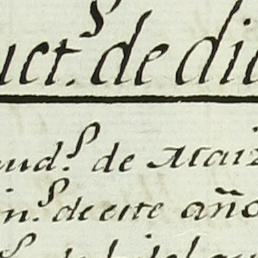 uct.s de di
ud.s de Maiz
in.s de este año